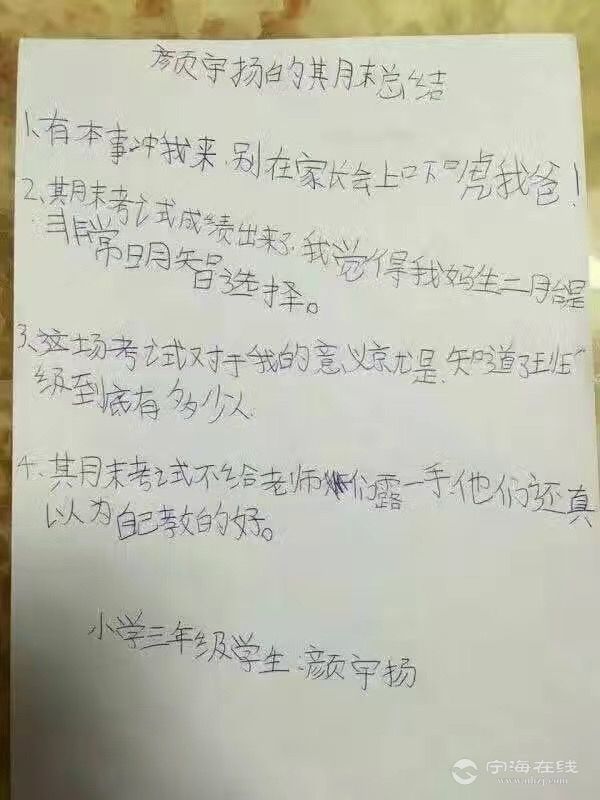 颜宇扬的期末总结
1、有本事冲我来,别在家长会上吓唬我爸!
2、期末考试成绩出来了,我觉得我妈生二胎是
非常明智选择。
3、这场考试对于我的意义就是,知道了班
级到底有多少人
4、期末考试不给老师们露一手,他们还真
以为自己教的好。
小学三年级学生:颜宇扬
宁海在线
www.nhzj.com